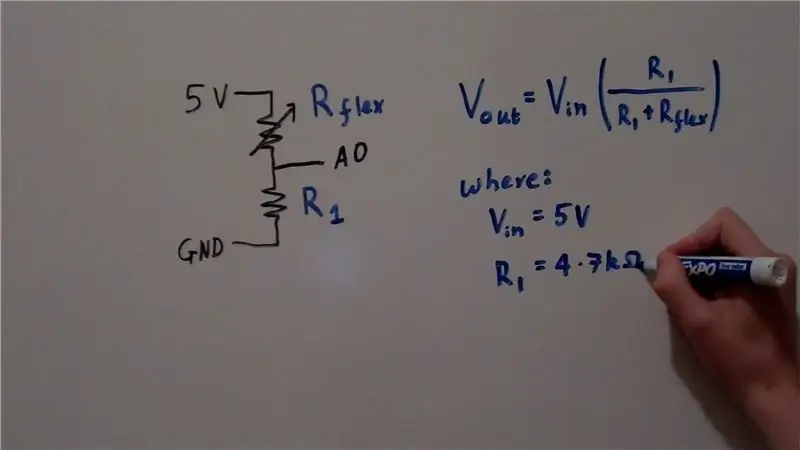 5V
R flex
A0
R1
GND
Vout = Vin (R1 / R1 + Rflex)
where:
Vin = 5V
R1 = 4.7kΩ
EXPO